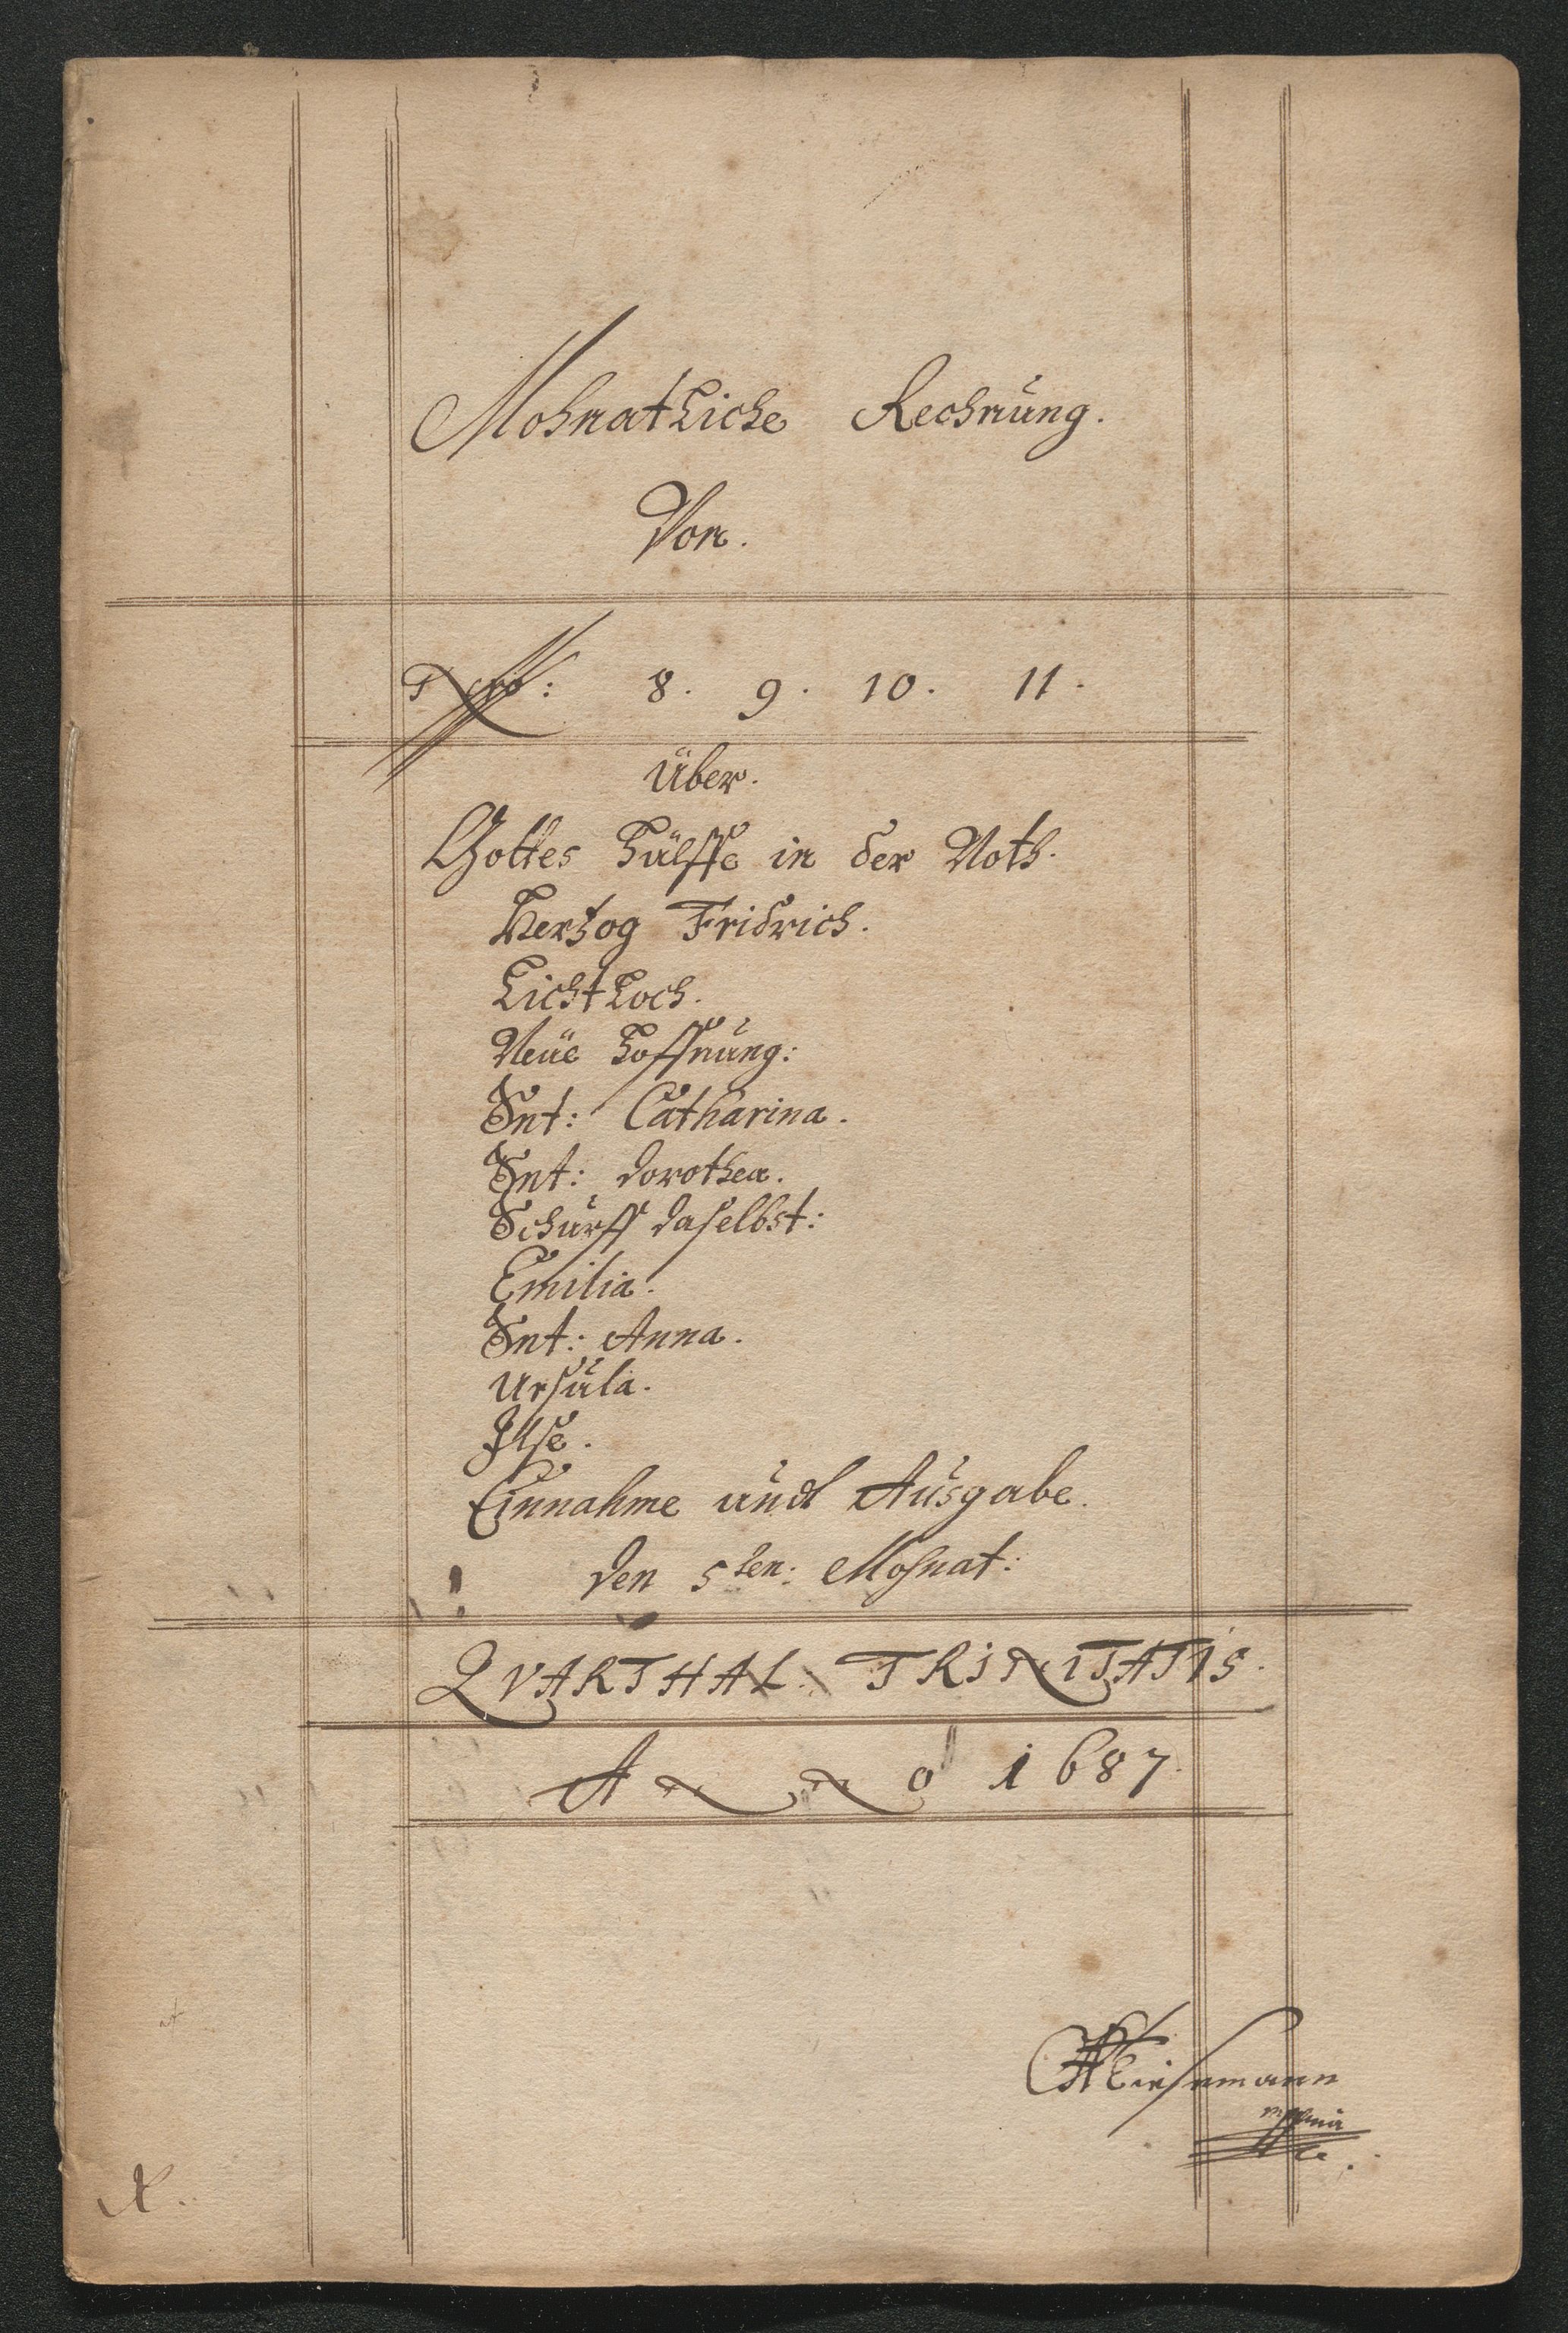 Mohnatliche Rechnung.
Von.
8. 9. 10. 11.
Über.
Gottes hülffe in der Noth.
Hertzog Fridrich.
Lichtloch.
Neüe hoffnung:
Snt: Catharina.
Snt: Dorothea.
Schurff daselbst:
Emilia.
Snt: Anna.
Ursula.
Ilse.
Einnahme und Ausgabe.
den 5ten: Mohnat:
QVARTHAL. TRINITATIS.
Anno 1687.